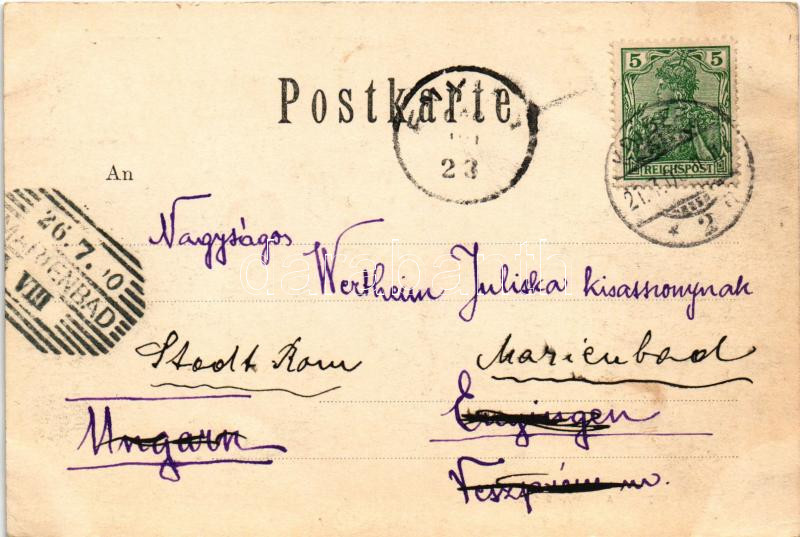 5 5
REICHSPOST
Postkarte
23
An
26.7.00
MARIENBAD
VIII
2
Nagyságos
Wertheim Juliska kisasszonynak
Stadt Rom Marienbad
Ungarn
Veszprém m.